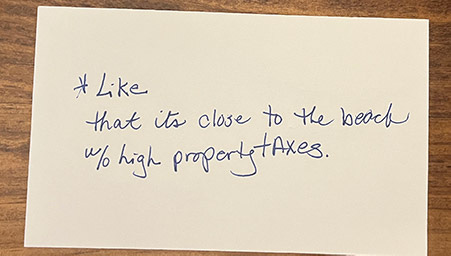 * Like
that its close to the beach
w/o high property tAxes.